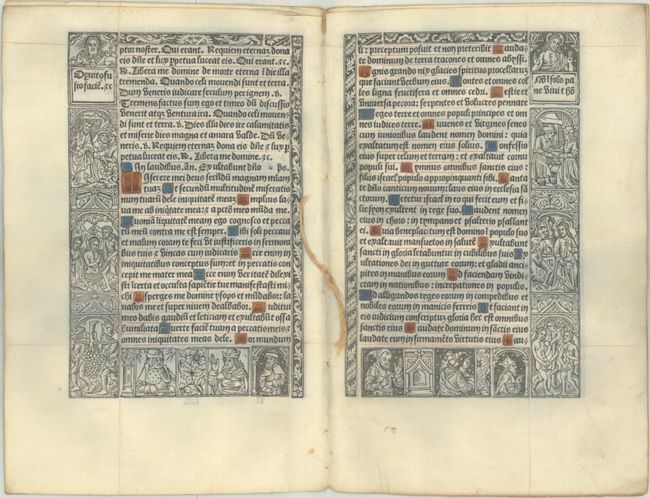 ptor noster. Qui erant. Requiem eternā: dona
eis dñe et lux ppetua luceat eis. Qui erant. ꝛc.
R. Libera me domine de morte eterna ī die illa
tremenda. Quando celi mouendi sunt et terra.
Dum veneris iudicare seculum per ignem. v.
Tremens factus sum ego et timeo dū discussio
venerit atqȝ ventura ira. Quando celi mouen
di sunt et terra. v. Dies illa dies ire calamitatis
et miserie dies magna et amara valde. Dū ve
neris. v. Requiem eternā: dona eis dñe ⁊ lux p
petua luceat eis. R. Libera me domine. ꝛc.
An laudibus. añ. Exultabunt dño ps.
Miserere mei deus secūdū magnam miām
tuaȝ. Et secundū multitudinē miseratio
num tuarū dele iniquitatē meaȝ. Amplius la-
ua me ab iniqtate mea: ⁊ a pctō meo mūda me.
Quoniā iiquitatē meam ego cognosco et pecca
tū meū contra me est semper. Tibi soli peccaui
et malum coram te feci vt iustificeris in sermoni
bus tuis ⁊ vincas cum iudicaris Ecce enim in
iniquitatibus conceptus sum: et in peccatis con
cepit me mater mea Ecce enim veritatē dilexi
sti incerta et occulta sapiētie tue manifestasti mi
chi Asperges me domine ysopo et mūdabor: la
uabis me et super niuem dealbabor. Auditui
meo dabis gaudiū et leticiam et exultabūt ossa
humiliata Auerte faciē tuam a peccatis meis: ⁊
omnes iniquitates meas dele. Cor mundum
Nō ī solo pa
ne viuit hō
li: preceptum posuit et non preteribit Lauda-
te dominum de terra dracones et omnes abyssi.
Ignis grando nix glacies spiritus procellarū:
que faciunt verbum eius. Montes et omnes col
les ligna fructifera et omnes cedri. Bestie et
vniuersa pecora: serpentes et volucres pennate
Reges terre et omnes populi principes et om-
nes iudices terre. Iuuenes et virgines senes
cum iunioribus laudent nomen domini: quia
exaltatum est nomen eius solius. Confessio
eius super celum et terram: et exaltauit cornu
populi sui. Hymnus omnibus sanctis eius:
filiis israel populo appropinquanti sibi. Canta
te dño canticum nouum: laus eius in ecclesia sā
ctorum. Letetur israel in eo qui fecit eum et fi-
lie syon exultent in rege suo. Laudent nomen
eius in choro: in tympano et psalterio psallant
ei. Quia beneplacitum est domino ī populo suo
et exaltauit mansuetos in salutē Exultabunt
sancti in gloria: letabuntur in cubilibus suis Ex
ultationes dei in gutture eorum: et gladii anci
pites in manibus eorum Ad faciendam vindi
ctam in nationibus: increpationes in populis.
Ad alligandos reges eorum in compedibus et
nobiles eorum in manicis ferreis Ut faciant in
eis iudicium conscriptū: gloria hec est omnibus
sanctis eius Laudate dominum in sāctis eius
laudate eum in firmamēto virtutis eius Lau-